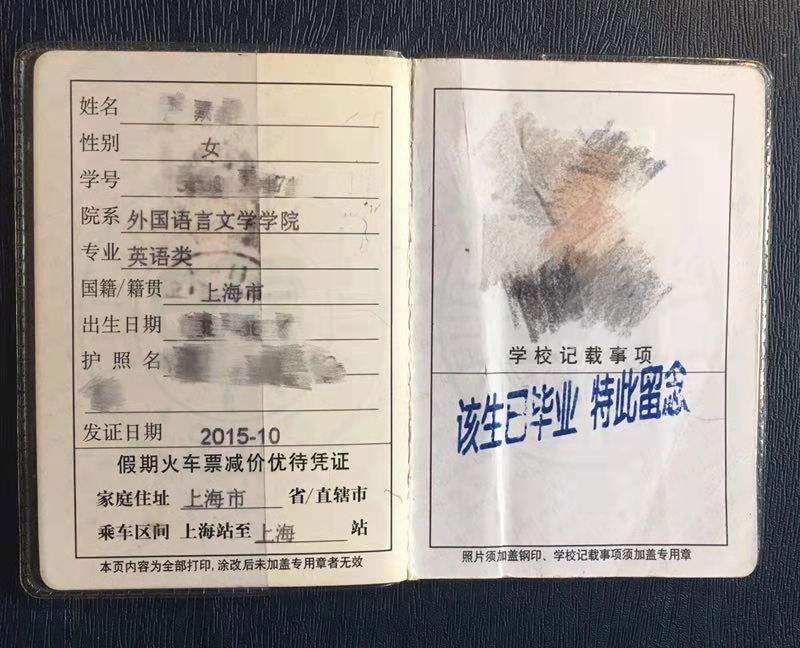 姓名
性别 女
学号
院系 外国语言文学学院
专业 英语类
国籍/籍贯 上海市
出生日期
护照名
发证日期 2015-10
假期火车票减价优待凭证
家庭住址 上海市 省/直辖市
乘车区间 上海站至 上海 站
本页内容为全部打印,涂改后未加盖专用章者无效
学校记载事项
该生已毕业 特此留念
照片须加盖钢印、学校记载事项须加盖专用章